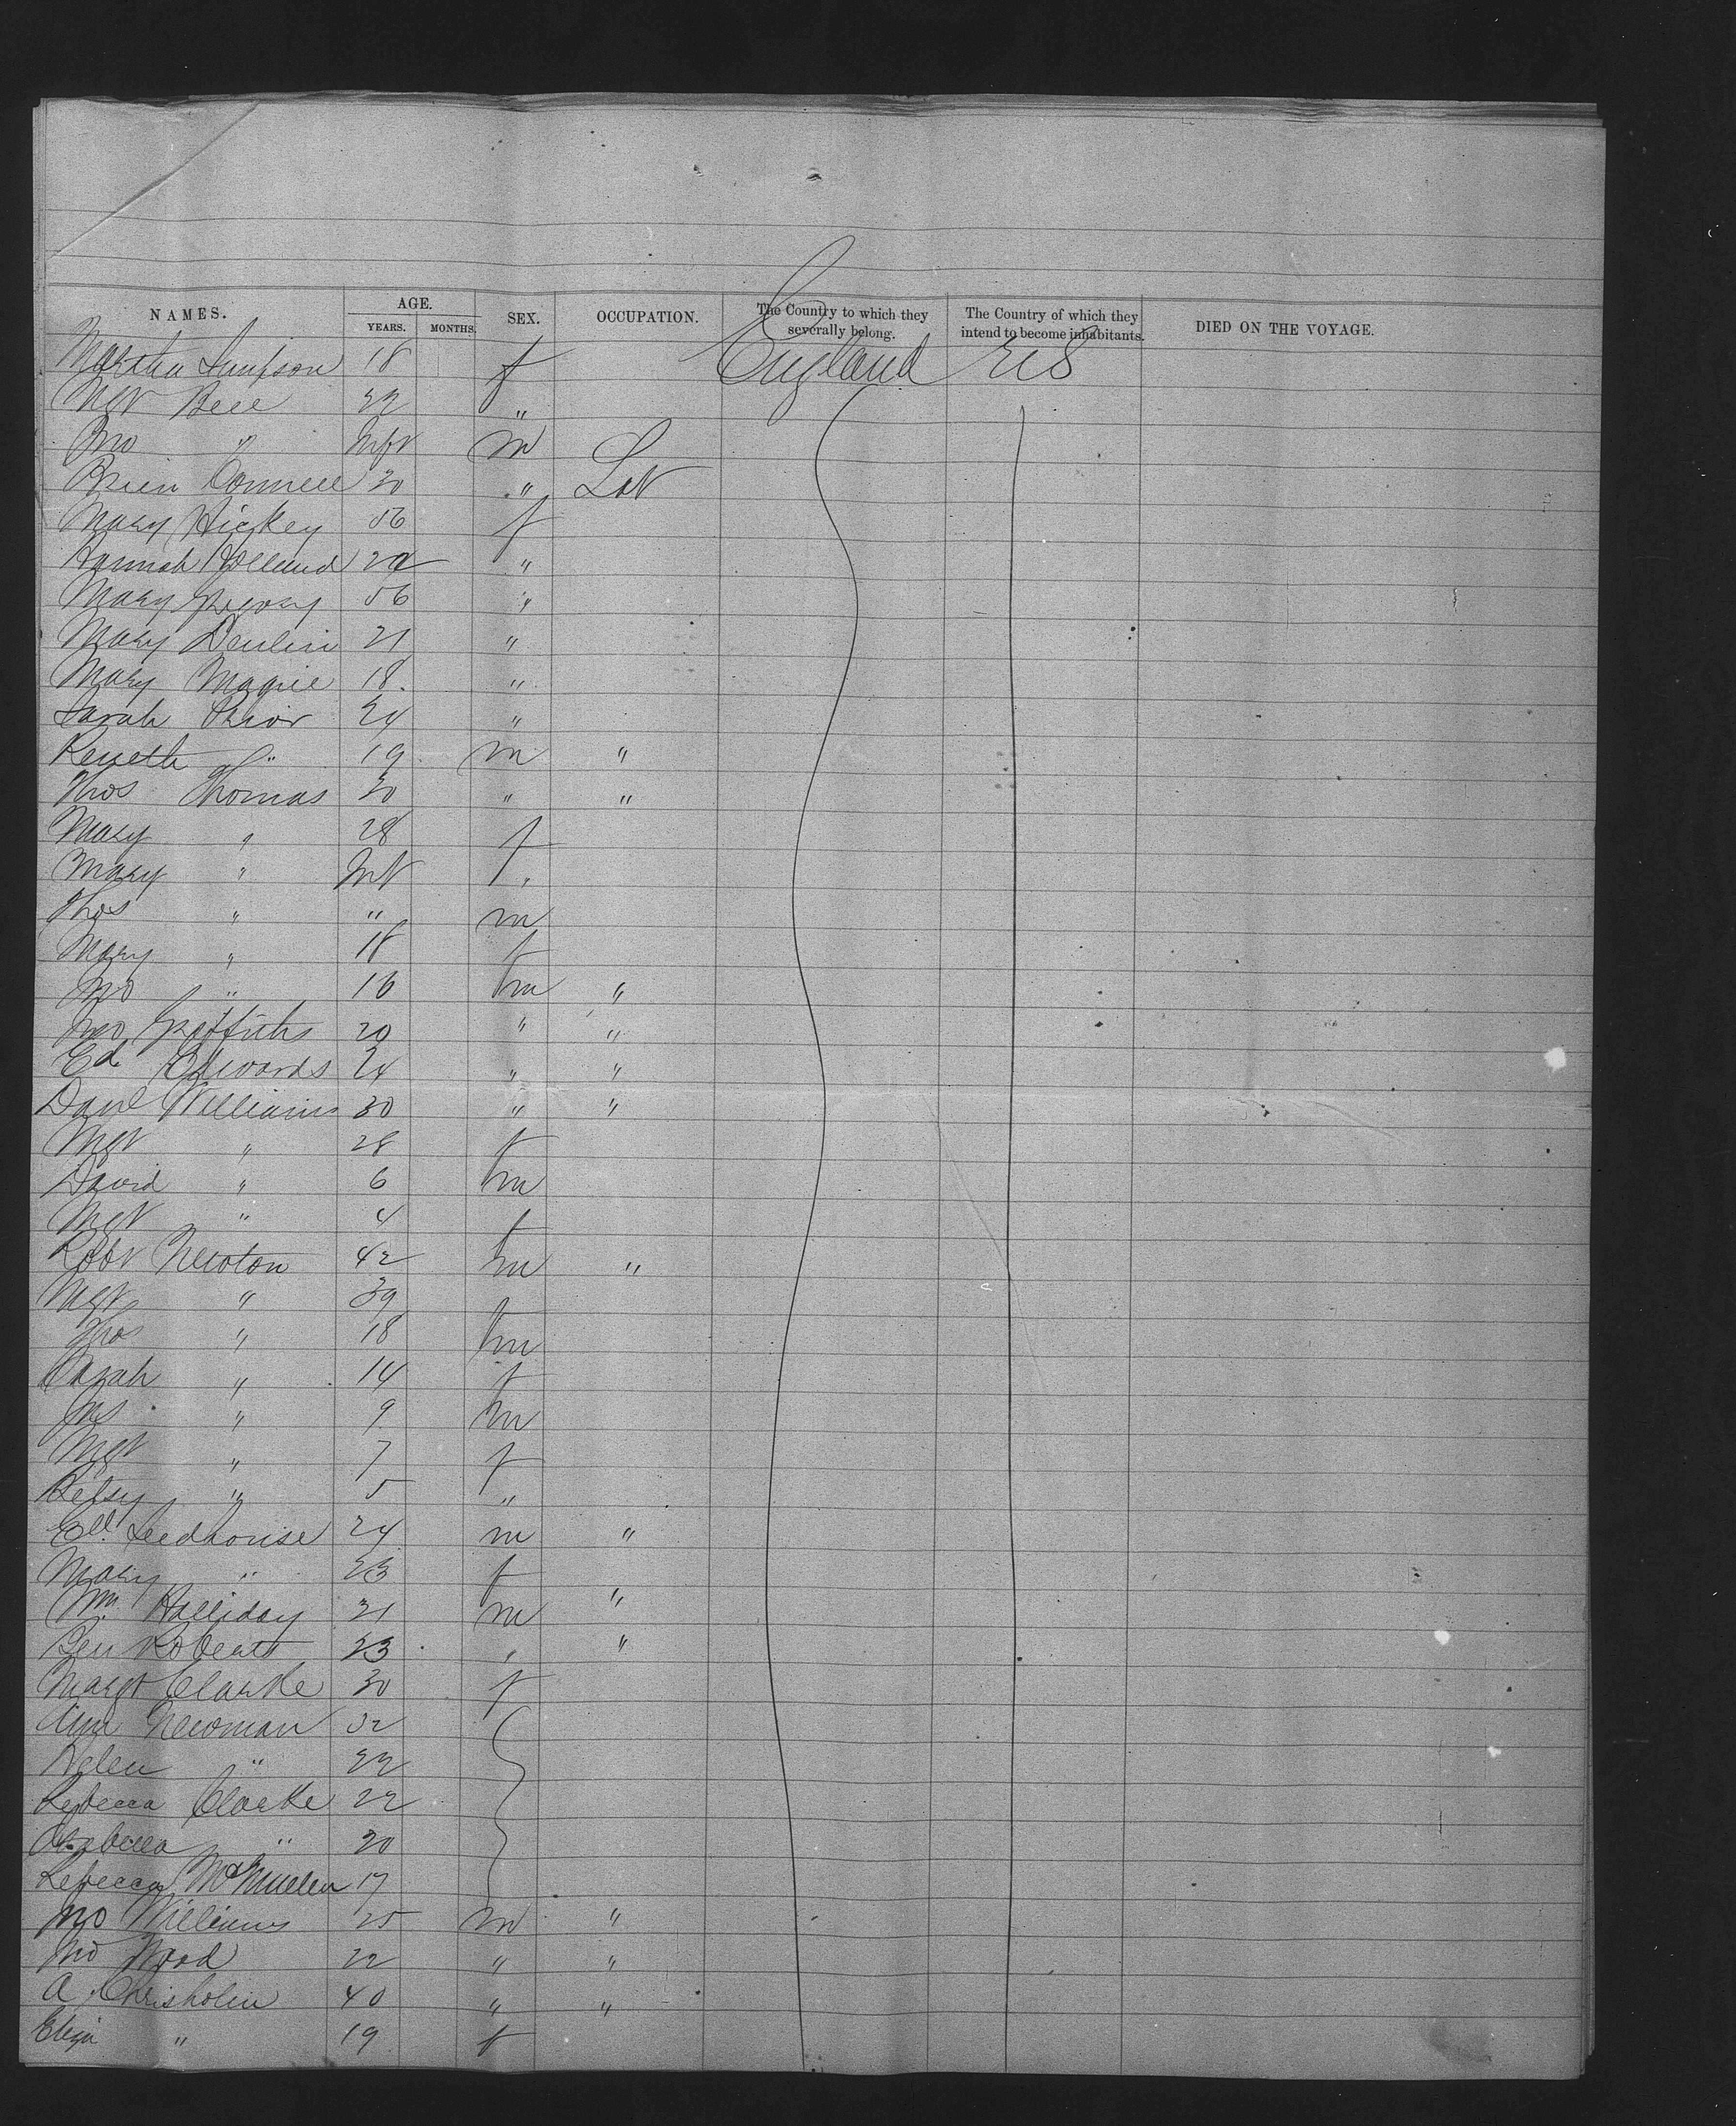 NAMES. AGE. SEX. OCCUPATION. The Country to which they severally belong. The Country of which they intend to become inhabitants. DIED ON THE VOYAGE.
YEARS. MONTHS.
Martha Simpson 18 f England U S
Mgt Bell 22 "
Jno " Inft m
Brien Connell 30 " Lab
Mary Hickey 56 f
Hannah Holland 20 "
Mary Gregory 56 "
Mary Devlin 21 "
Mary Magill 18 "
Sarah Prior 24 "
Kenneth " 19 m "
Thos Thomas 30 " "
Mary " 28 f
Mary " Inft f
Thos " " m
Mary " 18 f
Jno " 16 m "
Jno Griffiths 20 " "
Ed Edwards 24 " "
Danl Williams 30 " "
Mgt " 28 f
David " 6 m
Mgt " 4 f
Robt Newton 42 m "
Mgt " 39 f
Thos " 18 m
Sarah " 14 f
Jas " 9 m
Mgt " 7 f
Betsy " 5 "
Ed. Leedhouse 24 m "
Mary " 23 f
Wm Halliday 21 m "
Ben Roberts 23 " "
Margt Clarke 30 f
Ann Newman 32
Helen " 22
Rebecca Clarke 22
Isabella " 20
Rebecca McMullen 17
Jno Williams 25 m "
Jno Wood 22 " "
A. Chrisholm 40 " "
Eliza " 19 f